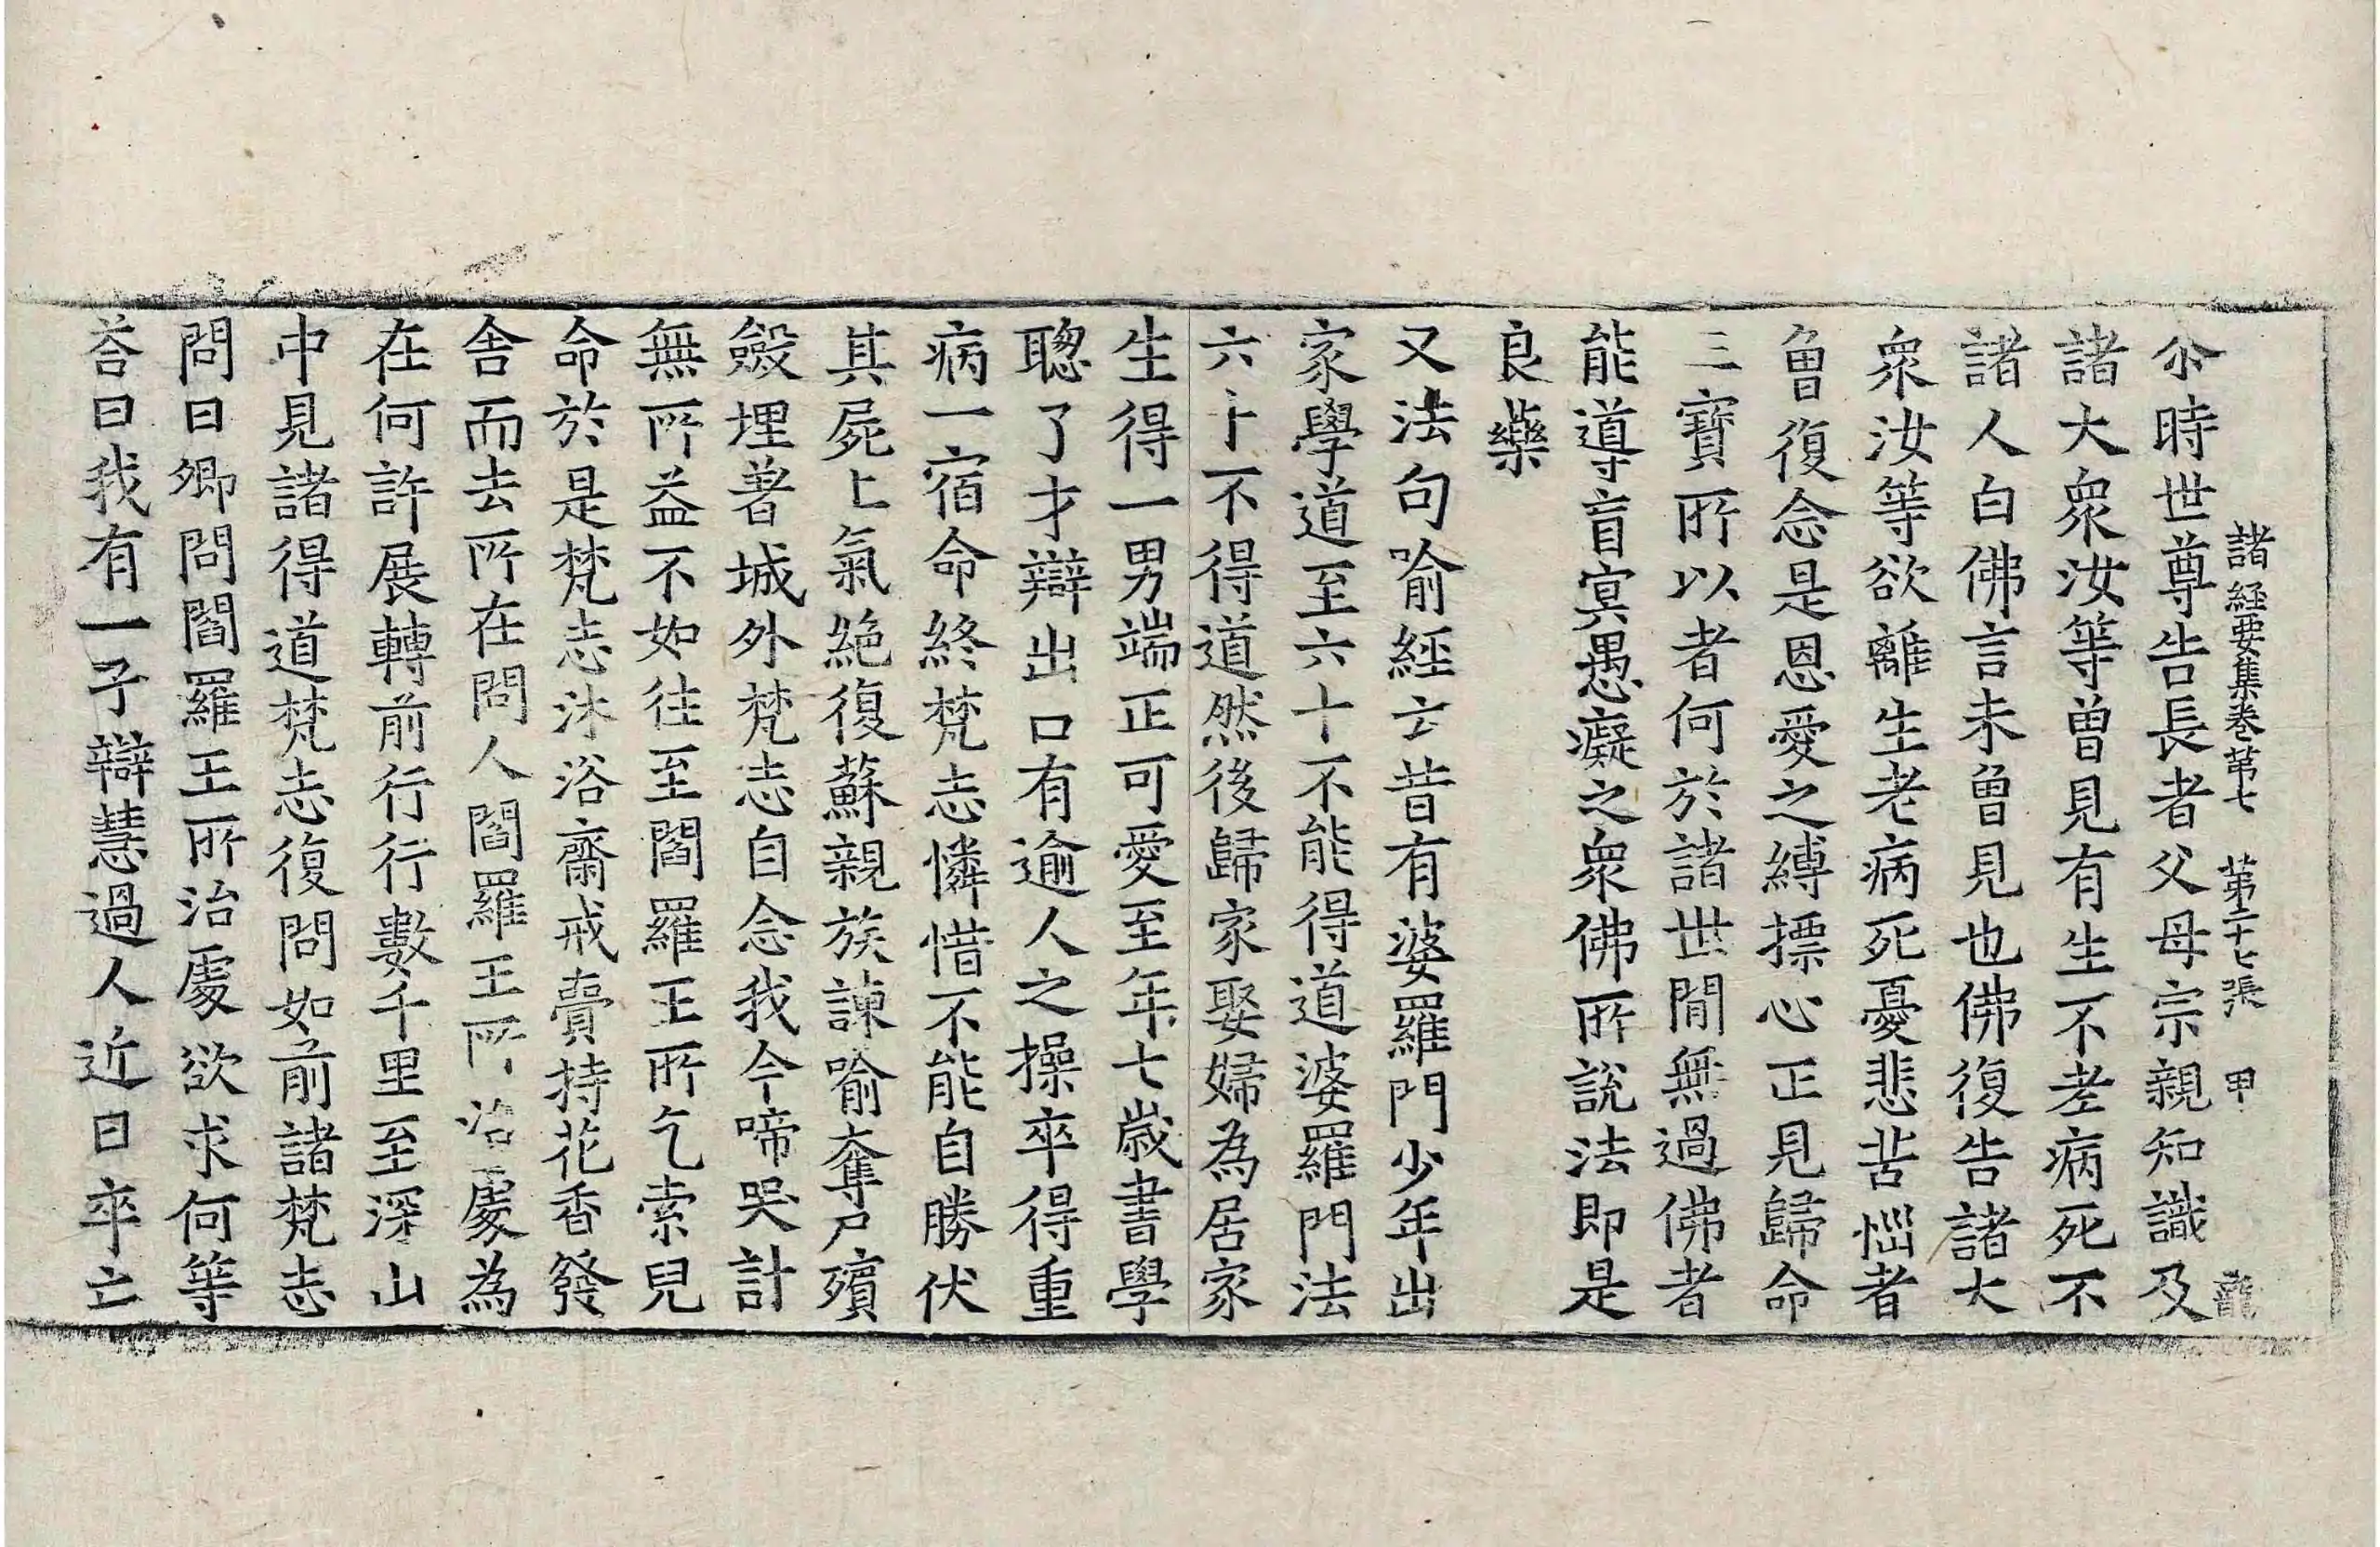 諸經要集卷第七　第二十七張　甲　龍
尒時世尊告長者父母宗親知識及
諸大衆汝等曾見有生不老病死不
諸人白佛言未曾見也佛復告諸大
衆汝等欲離生老病死憂悲苦惱者
曾復念是恩愛之縛摽心正見歸命
三寶所以者何於諸世閒無過佛者
能導盲冥愚癡之衆佛所說法即是
良藥
又法句喻經云昔有婆羅門少年出
家學道至六十不能得道婆羅門法
六十不得道然後歸家娶婦為居家
生得一男端正可愛至年七歲書學
聰了才辯出口有逾人之操卒得重
病一宿命終梵志憐惜不能自勝伏
其屍上氣絕復蘇親族諫喻奪尸殯
殮埋著城外梵志自念我今啼哭計
無所益不如往至閻羅王所乞索兒
命於是梵志沐浴齋戒賷持花香發
舍而去所在問人閻羅王所治處為
在何許展轉前行行數千里至深山
中見諸得道梵志復問如前諸梵志
問曰卿問閻羅王所治處欲求何等
荅曰我有一子辯慧過人近日卒亡